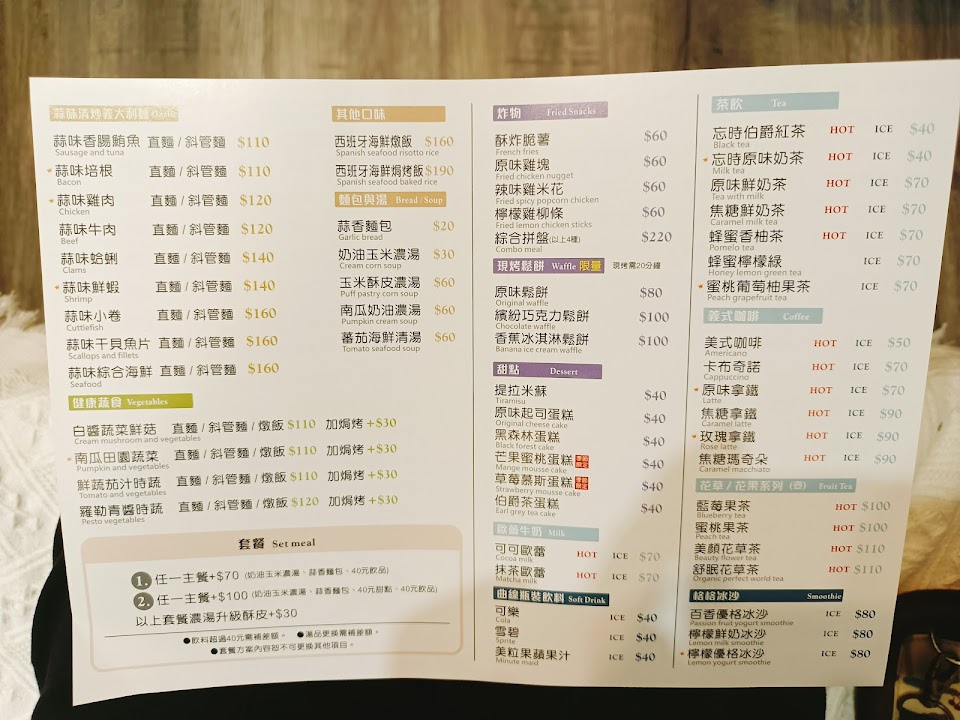 蒜味清炒義大利麵 Garlic
蒜味香腸鮪魚 直麵 / 斜管麵 $110
Sausage and tuna
蒜味培根 直麵 / 斜管麵 $110
Bacon
蒜味雞肉 直麵 / 斜管麵 $120
Chicken
蒜味牛肉 直麵 / 斜管麵 $120
Beef
蒜味蛤蜊 直麵 / 斜管麵 $140
Clams
蒜味鮮蝦 直麵 / 斜管麵 $140
Shrimp
蒜味小卷 直麵 / 斜管麵 $160
Cuttlefish
蒜味干貝魚片 直麵 / 斜管麵 $160
Scallops and fillets
蒜味綜合海鮮 直麵 / 斜管麵 $160
Seafood
其他口味
西班牙海鮮燉飯 $160
Spanish seafood risotto rice
西班牙海鮮焗烤飯 $190
Spanish seafood baked rice
麵包與湯 Bread / Soup
蒜香麵包 $20
Garlic bread
奶油玉米濃湯 $30
Cream corn soup
玉米酥皮濃湯 $60
Puff pastry corn soup
南瓜奶油濃湯 $60
Pumpkin cream soup
蕃茄海鮮清湯 $60
Tomato seafood soup
健康蔬食 Vegetables
白醬蔬菜鮮菇 直麵 / 斜管麵 / 燉飯 $110 加焗烤 +$30
Cream mushroom and vegetables
南瓜田園蔬菜 直麵 / 斜管麵 / 燉飯 $110 加焗烤 +$30
Pumpkin and vegetables
鮮蔬茄汁時蔬 直麵 / 斜管麵 / 燉飯 $110 加焗烤 +$30
Tomato and vegetables
羅勒青醬時蔬 直麵 / 斜管麵 / 燉飯 $120 加焗烤 +$30
Pesto vegetables
套餐 Set meal
1. 任一主餐+$70 (奶油玉米濃湯、蒜香麵包、40元飲品)
2. 任一主餐+$100 (奶油玉米濃湯、蒜香麵包、40元甜點、40元飲品)
以上套餐濃湯升級酥皮+$30
●飲料超過40元需補差額。 ●湯品更換需補差額。
●套餐方案內容恕不可更換其他項目。
炸物 Fried Snacks
酥炸脆薯 $60
French fries
原味雞塊 $60
Fried chicken nugget
辣味雞米花 $60
Fried spicy popcorn chicken
檸檬雞柳條 $60
Fried lemon chicken sticks
綜合拼盤(以上4種) $220
Combo meal
現烤鬆餅 Waffle 限量 現烤需20分鐘
原味鬆餅 $80
Original waffle
繽紛巧克力鬆餅 $100
Chocolate waffle
香蕉冰淇淋鬆餅 $100
Banana ice cream waffle
甜點 Dessert
提拉米蘇 $40
Tiramisu
原味起司蛋糕 $40
Original cheese cake
黑森林蛋糕 $40
Black forest cake
芒果蜜桃蛋糕 季節限定 $40
Mange mousse cake
草莓慕斯蛋糕 季節限定 $40
Strawberry mousse cake
伯爵茶蛋糕 $40
Earl grey tea cake
歐蕾牛奶 Milk
可可歐蕾 HOT ICE $70
Cocoa milk
抹茶歐蕾 HOT ICE $70
Matcha milk
曲線瓶裝飲料 Soft Drink
可樂 ICE $40
Cola
雪碧 ICE $40
Sprite
美粒果蘋果汁 ICE $40
Minute maid
茶飲 Tea
忘時伯爵紅茶 HOT ICE $40
Black tea
忘時原味奶茶 HOT ICE $40
Milk tea
原味鮮奶茶 HOT ICE $70
Tea with milk
焦糖鮮奶茶 HOT ICE $70
Caramel milk tea
蜂蜜香柚茶 HOT ICE $70
Pomelo tea
蜂蜜檸檬綠 ICE $70
Honey lemon green tea
蜜桃葡萄柚果茶 ICE $70
Peach grapefruit tea
義式咖啡 Coffee
美式咖啡 HOT ICE $50
Americano
卡布奇諾 HOT ICE $70
Cappuccino
原味拿鐵 HOT ICE $70
Latte
焦糖拿鐵 HOT ICE $90
Caramel latte
玫瑰拿鐵 HOT ICE $90
Rose latte
焦糖瑪奇朵 HOT ICE $90
Caramel macchiato
花草 / 花果系列 (壺) Fruit Tea
藍莓果茶 HOT $100
Blueberry tea
蜜桃果茶 HOT $100
Peach tea
美顏花草茶 HOT $110
Beauty flower tea
舒眠花草茶 HOT $110
Organic perfect world tea
格格冰沙 Smoothie
百香優格冰沙 ICE $80
Passion fruit yogurt smoothie
檸檬鮮奶冰沙 ICE $80
Lemon milk smoothie
檸檬優格冰沙 ICE $80
Lemon yogurt smoothie